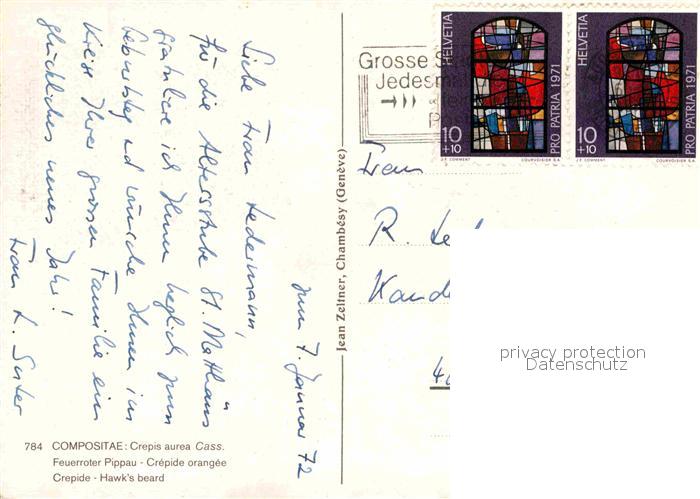 zum 7. Januar 72
Liebe Frau Ledermann,
für die Altersstube St. Mathäus
gratuliere ich Ihnen herzlich zum
Geburtstag und wünsche Ihnen im
Kreise Ihrer grossen Familie ein
glückliches neues Jahr!
Frau L. Suter
784 COMPOSITAE: Crepis aurea Cass.
Feuerroter Pippau - Crépide orangée
Crepide - Hawk's beard
Jean Zeltner, Chambésy (Genève)
Grosse
Jedesm
HELVETIA
10
+10
PRO PATRIA 1971
J.F. COMMENT COURVOISIER S.A.
HELVETIA
10
+10
PRO PATRIA 1971
J.F. COMMENT COURVOISIER S.A.
Frau
R. Le
Kande
privacy protection
Datenschutz